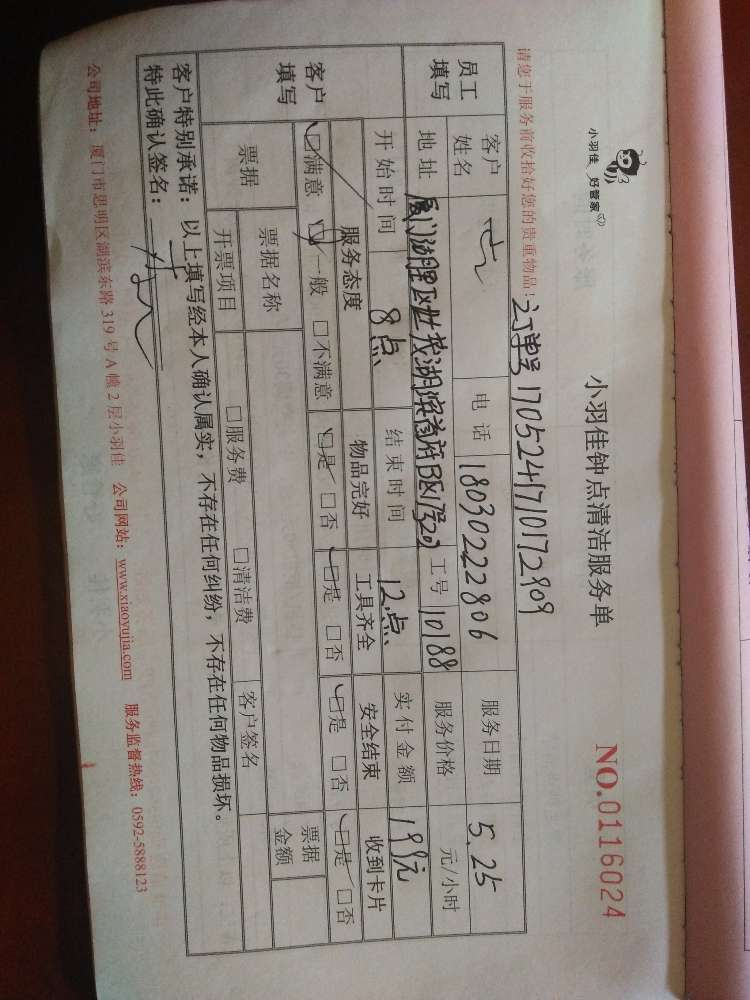 小羽佳 好管家
小羽佳钟点清洁服务单
NO.0116024
请您于服务前收拾好您的贵重物品!
订单号 1705241710172909
员工填写
客户姓名
电话 18030222806
服务日期 5.25
地址 厦门湖里区世茂湖滨首府B区
工号 10188
服务价格 元/小时
开始时间 8点
结束时间 12点
实付金额 199元
客户填写
服务态度 物品完好 工具齐全 安全结束 收到卡片
☑满意 □一般 □不满意 ☑是 □否 ☑是 □否 ☑是 □否 ☑是 □否
票据
票据名称
票据金额
开票项目 □服务费 □清洁费 客户签名
客户特别承诺:以上填写经本人确认属实,不存在任何纠纷,不存在任何物品损坏。
特此确认签名:
公司地址:厦门市思明区湖滨东路 319 号 A 幢 2 层小羽佳 公司网站:www.xiaoyujia.com 服务监督热线:0592-5888123